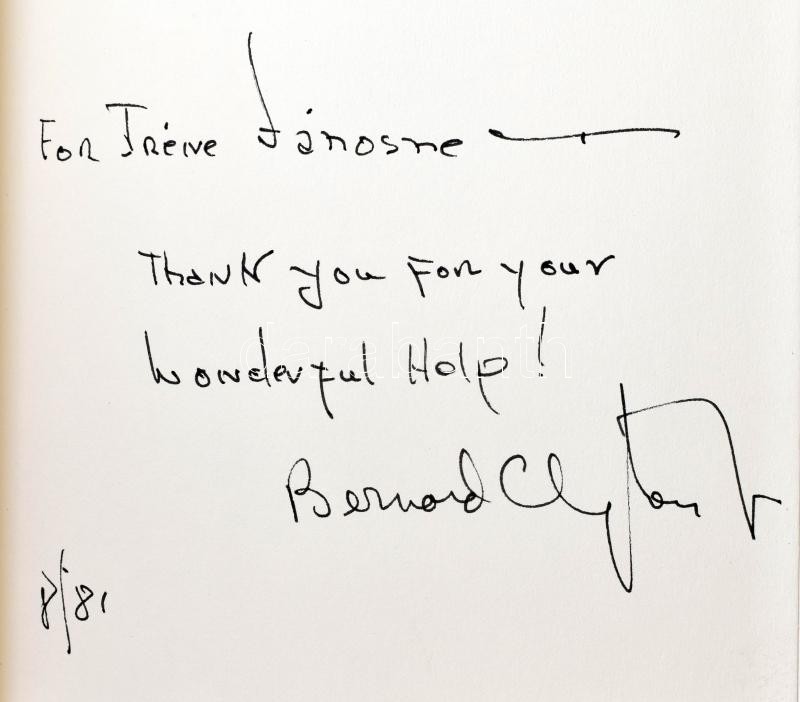 For Iréne Jánosne —
Thank you For your
wonderful Help!
Bernard Clayton Jr
8/81
darabanth